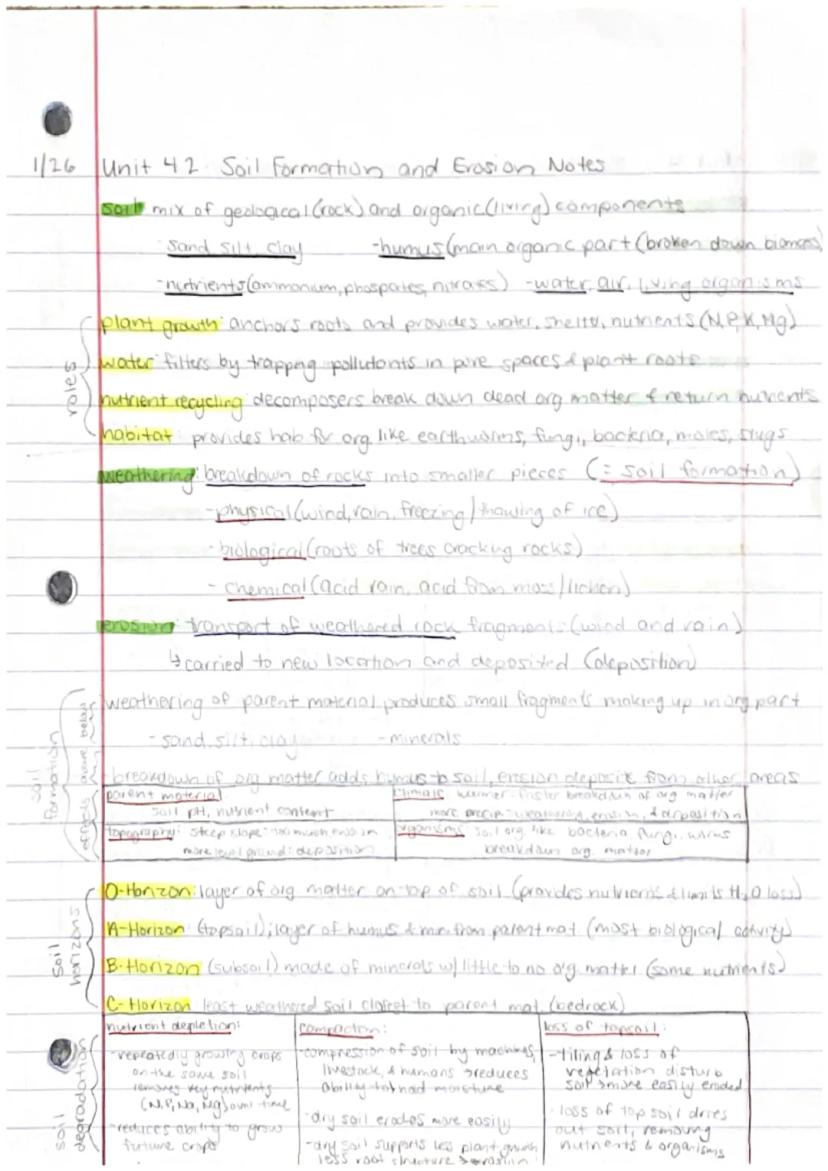 1/26 Unit 4.2 Soil Formation and Erosion Notes
soil: mix of geological (rock) and organic (living) components
· sand silt clay -humus (main organic part (broken down biomass)
-nutrients (ammonium, phospates, nitrates) -water, air, living organisms
roles
plant growth: anchors roots and provides water, shelter, nutrients (N,P,K,Mg)
water: filters by trapping pollutants in pore spaces & plant roots
nutrient recycling: decomposers break down dead org matter & return nutrients
habitat: provides hab for org like earthworms, fungi, bacteria, moles, slugs
weathering: breakdown of rocks into smaller pieces (= soil formation)
-physical (wind, rain, freezing/thawing of ice)
- biological (roots of trees cracking rocks)
- chemical (acid rain, acid from moss/lichen)
erosion: transport of weathered rock fragments (wind and rain)
↳ carried to new location and deposited (deposition)
soil formation
effects
weathering of parent material produces small fragments making up inorg part
- sand, silt, clay - minerals
-breakdown of org matter adds humus to soil, erosion deposits from other areas
parent material
soil pH, nutrient content
climate: warmer = faster breakdown of org matter
more precip = weathering, erosion, & deposition
topography: steep slope = too much erosion
more level ground: deposition
organisms: soil org. like bacteria, fungi, worms
breakdown org. matter
soil horizons
O-Horizon: layer of org matter on top of soil (provides nutrients & limits H₂O loss)
A-Horizon (topsoil); layer of humus & min from parent mat (most biological activity)
B-Horizon (subsoil) made of minerals w/ little to no org matter (some nutrients)
C-Horizon least weathered soil closest to parent mat (bedrock)
soil degradation
nutrient depletion:
-repeatedly growing crops
on the same soil
removes key nutrients
(N,P,Na,Mg) over time
-reduces ability to grow
future crops
compaction:
-compression of soil by machines,
livestock, & humans → reduces
ability to hold moisture
-dry soil erodes more easily
-dry soil supports less plant growth
less root structure → erosion
loss of topsoil:
-tiling & loss of
vegetation disturb
soil → more easily eroded
· loss of top soil dries
out soil, removing
nutrients & organisms